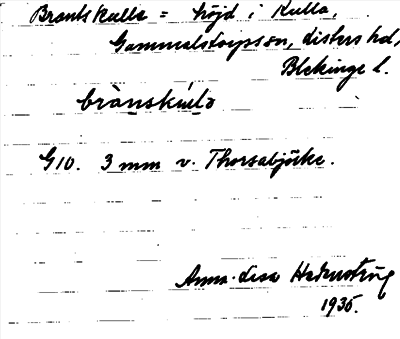 Brantskulla = höjd i Kulla,
Gammalstorps sn, Listers hd,
Blekinge l.
brànskùla
G10. 3 mm v. Thorsabjörke.
Anna-Lisa
1935.